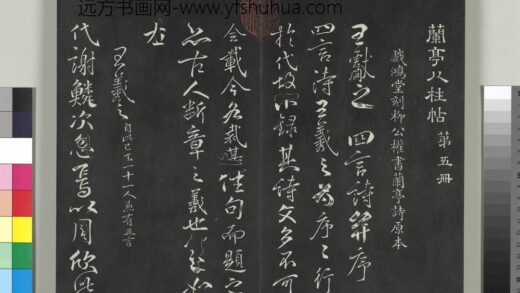 远方书画网-www.yfshuhua.com
蘭亭八柱帖 第五冊
戲鴻堂刻柳公權書蘭亭詩原本
王獻之 四言詩并序
四言詩王羲之為序序行
於代故不錄其詩文多不可
全載今各裁其佳句而題之
亦古人斷章之義也
王羲之 自此已下一十一人各有五言
代謝鱗次忽焉以周欣此